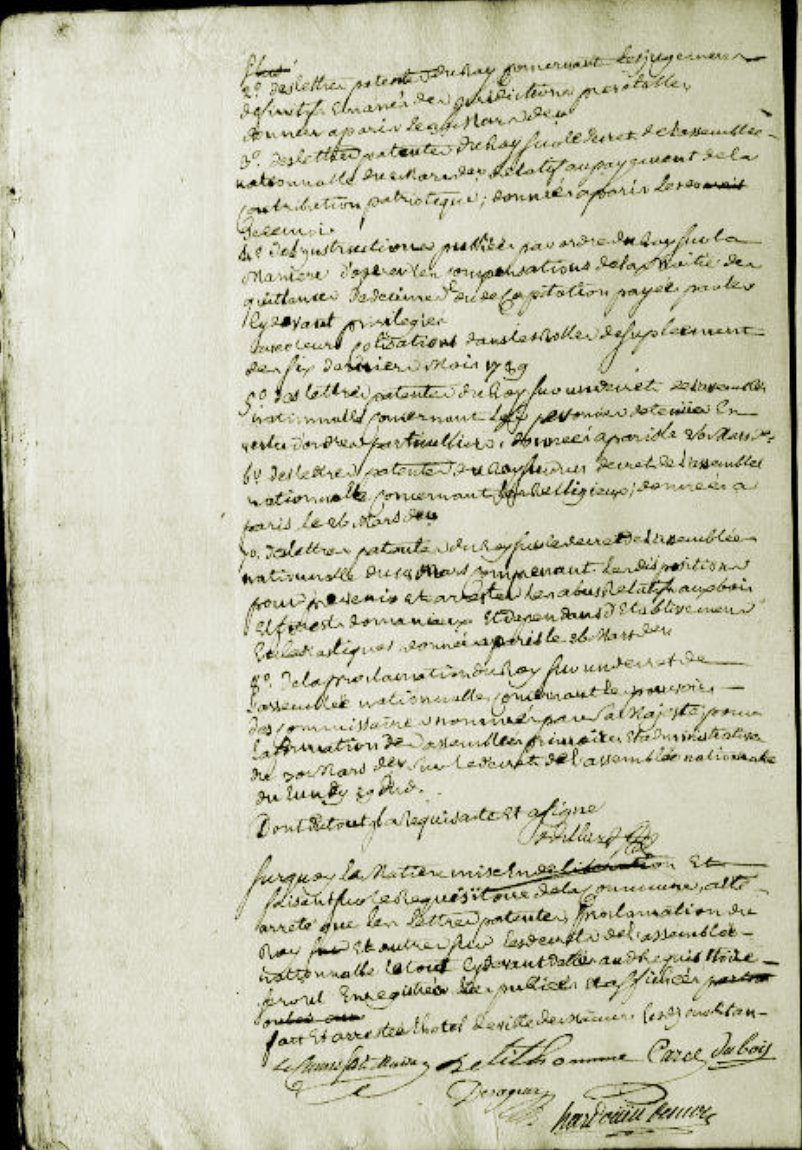 2º. des lettres patentes du Roy concernant les jugemens
definitifs émanés des jurisdictions prevotalles
données a paris le Mars der
3º. des lettres patentes du Roy sur le decret de l'assemblée
nationnalle du Mars der relatif au payement de la
contribution patriotique; données a paris le
de ce mois
4º. des ynstructions publiées par ordre du Roy sur la
Maniere d'operer les compensations de la Moitié des
quittances de decimes et de Capitation payée par les
cy devant privilegiés
avec leurs cotisations dans les Rolles de suplement
des six derniers Mois 1789
5º. des lettres patentes du Roy sur un decret de l'assemblée
nationnalle concernant les personnes detenues En
vertu d'ordres particulliers, données a paris le 26 Mars der
6º. des lettres patentes du Roy sur un decret de l'assemblée
nationnalle concernant les Relligieux; données a
paris le 26 Mars der
7º. des lettres patentes du Roy sur le decret de l'assemblée
nationnalle du Mars comprenant les dispositions
pour prevenir et arrester les abus Relatifs aux bois
et forests domaniaux Et dependans d'Etablissemens
Ecclesiastiques données a paris le 26 Mars der
8º. de la proclamation du Roy sur un decret de
l'assemblée nationnalle concernant le pouvoir
des commissaires nommés par sa Majesté pour
la formation des assemblées primaires Et administratives
du 30 Mars der sur le decret de l'assemblée nationnale
du lundy 29 dud.
Dont du tout yl a Requis acte Et a signé
Surquoy la Matiere mise En deliberation Et
faisant sur le Requisitoire de la Commune, a été
arreté que les lettres patentes, proclamation du
Roy Et autres sur les decrets de l'assemblée
nationnalle le tout Cy devant datés aud Requisitoire
seront Enregistrés lus publiés Et affichés partout

fait Et arresté a l'hotel de ville de les jour Et an
petithomme Carré Dubois
hardouin